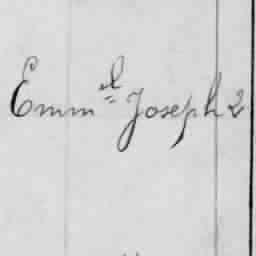 Emm^el Joseph 2